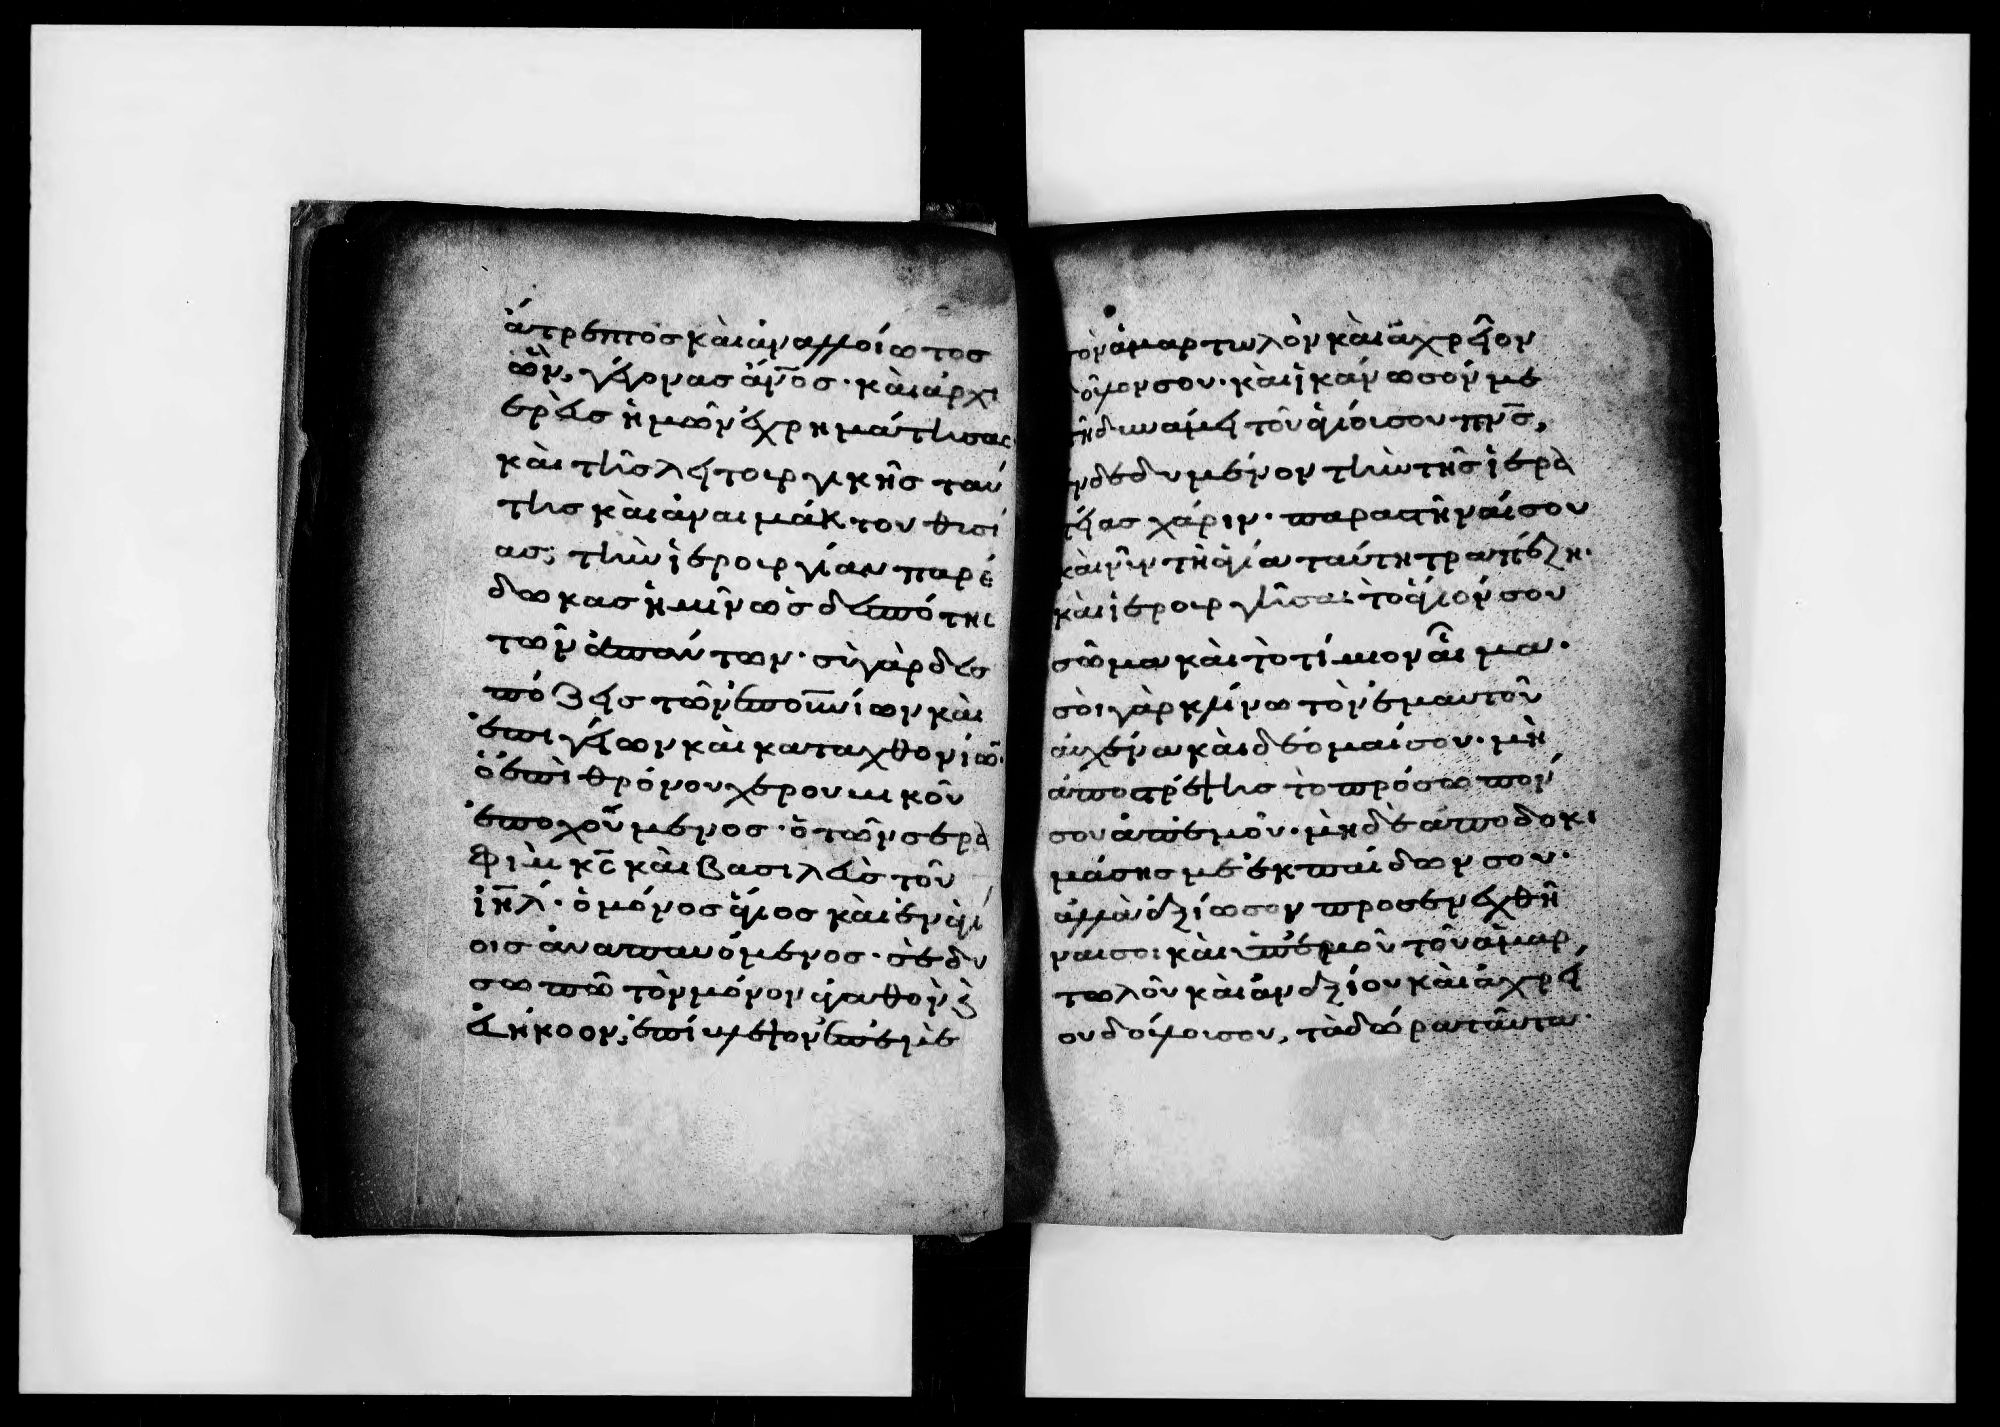 ἀτρέπτος καὶ ἀναλλοίωτος
ὢν, γέγονας ἄνος· καὶ ἀρχι
ερεὺς ἡμῶν ἐχρημάτησας·
καὶ τῆς λειτουργικῆς ταύ
της καὶ ἀναιμάκτου θυσί
ας, τὴν ἱερουργίαν παρέ
δωκας ἡμῖν ὡς δεσπότης
τῶν ἁπάντων· σὺ γὰρ δεσ
πόζεις τῶν ἐπουνίων καὶ
ἐπιγείων καὶ καταχθονίων·
ὁ ἐπὶ θρόνου χερουβικοῦ
ἐποχούμενος· ὁ τῶν σερα
φὶμ κς καὶ βασιλεὺς τοῦ
ιηλ· ὁ μόνος ἅγιος καὶ ἐν ἁγί
οις ἀναπαυόμενος· σὲ δυ
σωπῶ τὸν μόνον ἀγαθὸν καὶ
εὐήκοον, ἐπίβλεψον ἐπ' ἐμὲ
τὸν ἁμαρτωλὸν καὶ ἀχρεῖον
δοῦλον σου· καὶ ἱκάνωσόν με
τῇ δυνάμει τοῦ ἁγίου σου πνς,
ἐνδεδυμένον τὴν τῆς ἱερα
τείας χάριν· παραστῆναί σου
καὶ νῦν τῇ ἁγία ταύτη τραπέζη·
καὶ ἱερουργῆσαι τὸ ἅγιόν σου
σῶμα καὶ τὸ τίμιον αἷμα·
σοὶ γὰρ κλίνω τὸν ἐμαυτοῦ
αὐχένα καὶ δέομαί σου· μὴ
ἀποστρέψης τὸ πρόσωπόν
σου ἀπ' ἐμοῦ· μὴ δὲ ἀποδοκι
μάσης με ἐκ παίδων σου·
ἀλλὰ ἀξίωσον προσενεχθῆ
ναι σοι καὶ ὑπ' ἐμοῦ τοῦ ἁμαρ
τωλοῦ καὶ ἀναξίου καὶ ἀχρεί
ου δούλου σου, τὰ δῶρα ταῦτα·